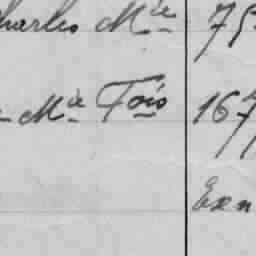 Charles Mie 75
Mie Fois 167
Exn